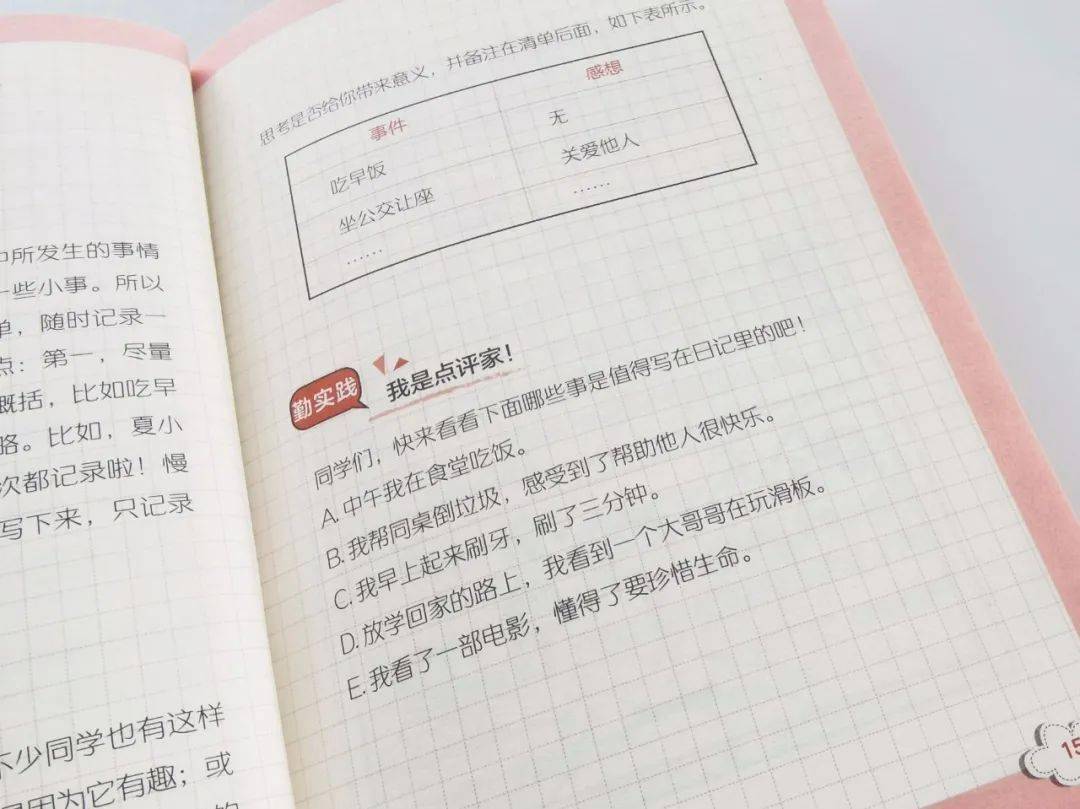 中所发生的事情
一些小事。所以
单，随时记录一
点：第一，尽量
概括，比如吃早
略。比如，夏小
次都记录啦！慢
写下来，只记录
不少同学也有这样
因为它有趣；或
的
思考是否给你带来意义，并备注在清单后面，如下表所示。
事件 感想
吃早饭 无
坐公交让座 关爱他人
…… ……
勤实践 我是点评家！
同学们，快来看看下面哪些事是值得写在日记里的吧！
A.中午我在食堂吃饭。
B.我帮同桌倒垃圾，感受到了帮助他人很快乐。
C.我早上起来刷牙，刷了三分钟。
D.放学回家的路上，我看到一个大哥哥在玩滑板。
E.我看了一部电影，懂得了要珍惜生命。
15